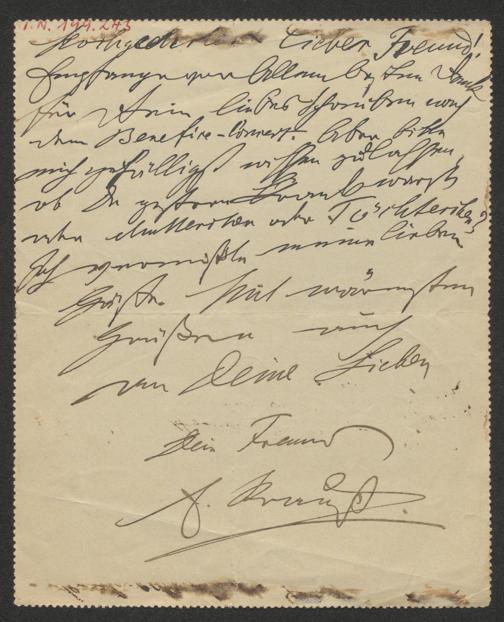 I.N. 199.243
Hochgeehrter Lieber Freund!
Empfange vor Allem besten Dank
für Dein liebes Schreiben und
dem Benefice-Convert. Aber bitte
mich gefälligst wissen zu lassen,
ob Du gestern krank warst
oder Mutterchen oder Töchterchen?
Ich vermißte meine lieben
Gäste. Mit wärmsten
Grüßen auch
an Deine Lieben
Dein Freund